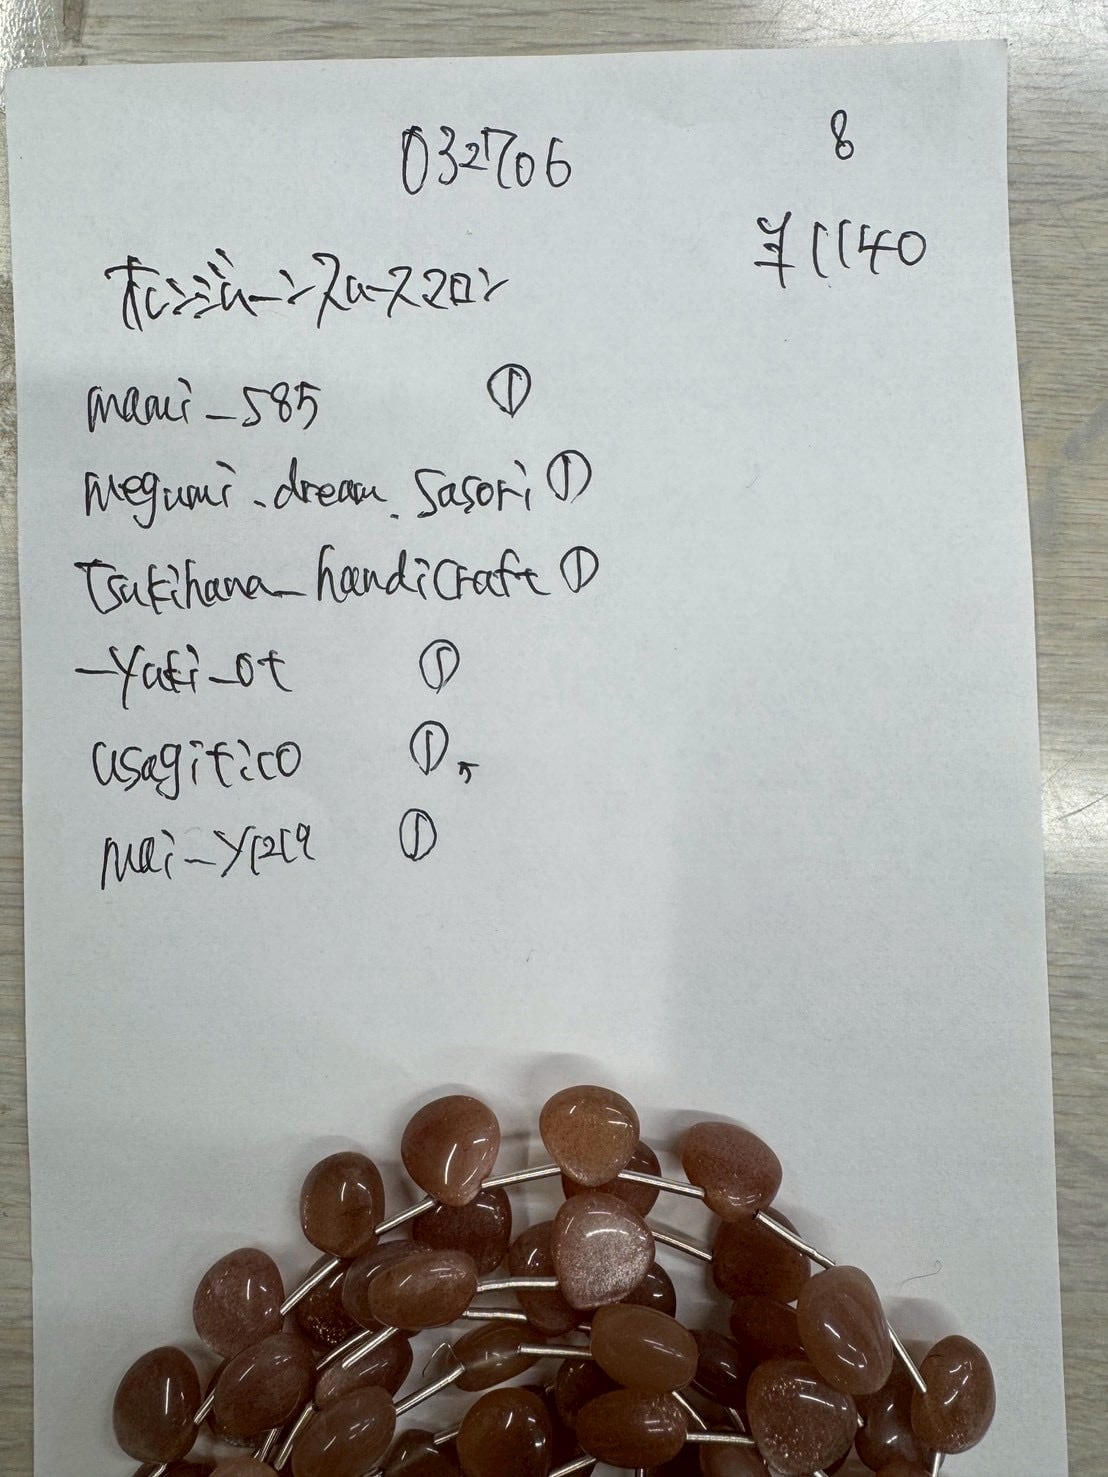 032706
8
¥1140
オレンジムーンスムースマロン
mami_585 ①
megumi.dream.sasori ①
tsukihana_handicraft ①
_yuki_ot ①
usagitico ①
mai_y1219 ①